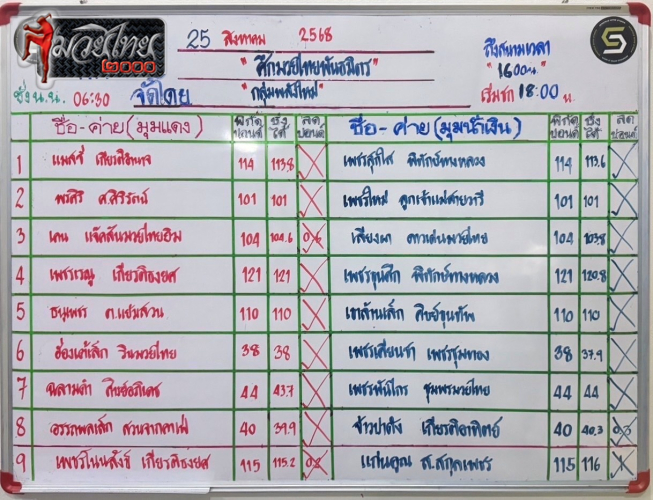 มวยไทย
๒๐๐๐
25 สิงหาคม 2568
" ศึกมวยไทยพันธมิตร "
ถึงสนามเวลา
" 16.00 น. "
ชั่ง น.น. 06:30 จัดโดย "กลุ่มพลังใหม่" เริ่มชก 18:00 น.
ชื่อ-ค่าย (มุมแดง) พิกัด ปอนด์ ชั่งได้ ลด ปอนด์ ชื่อ-ค่าย (มุมน้ำเงิน) พิกัด ปอนด์ ชั่งได้ ลด ปอนด์
1 แมสซี่ 114 113.8 เพชรสุกใส พิทักษ์ทางหลวง 114 113.6
2 พรศิริ ส.สิริรัตน์ 101 101 เพชรใหม่ ลูกเจ้าแม่สายวารี 101 101
3 เคน แจ๊คสันมวยไทยยิม 104 104.6 0.6 เสียงผา ดาวเด่นมวยไทย 104 103.8
4 เพชรเวณู เกียรติยงยศ 121 121 เพชรขุนศึก พิทักษ์ทางหลวง 121 120.8
5 ธนูเพชร ต.แย้มสวน 110 110 เขาล้านเล็ก ศิษย์ขุนทัพ 110 110
6 ฮ่องเต้เล็ก วินมวยไทย 38 38 เพชรเตียนชา เพชรชุมทอง 38 37.9
7 ฉลามดำ ศิษย์อภิเดช 44 43.7 เพชรพันไกร ชุมพรมวยไทย 44 44
8 อรรถพลเล็ก สวนจากคาเฟ่ 40 39.9 จ้าวป่าดัง เกียรติอาทิตย์ 40 40.3 0.3
9 เพชรโนนสังข์ เกียรติยงยศ 115 115.2 0.2 แก่นคูณ ส.สกุลเพชร 115 116 1